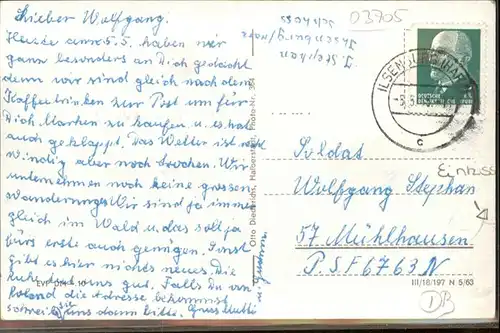 Lieber Wolfgang.
Heute am 5.5. haben wir
ganz besonders an Dich gedacht
denn wir sind gleich nach dem
Kaffeetrinken zur Post um für
Dich Marken zu kaufen u. es hat
auch geklappt. Das Wetter ist recht
windig aber noch trocken. Wir
unternehmen noch keine grossen
Wanderungen Wir sind ja immer
gleich im Wald u. das soll ja
fürs erste auch genügen. Sonst
gibt es hier nichts neues. Die
Ruhe tut uns gut. Falls Du von
Roland die Adresse bekommst
schreib sie uns dann bitte. Gruss Mutti
EVP DM
J. Stephan
Ilsenburg/Harz
Schloss
03705
ILSENBURG (HARZ)
c
DEUTSCHE
Otto Diedemann, Halberstadt
Soldat
Wolfgang Stephan
57 Mühlhausen
P.S.F 6763 N
III/18/197 N 5/63
DB